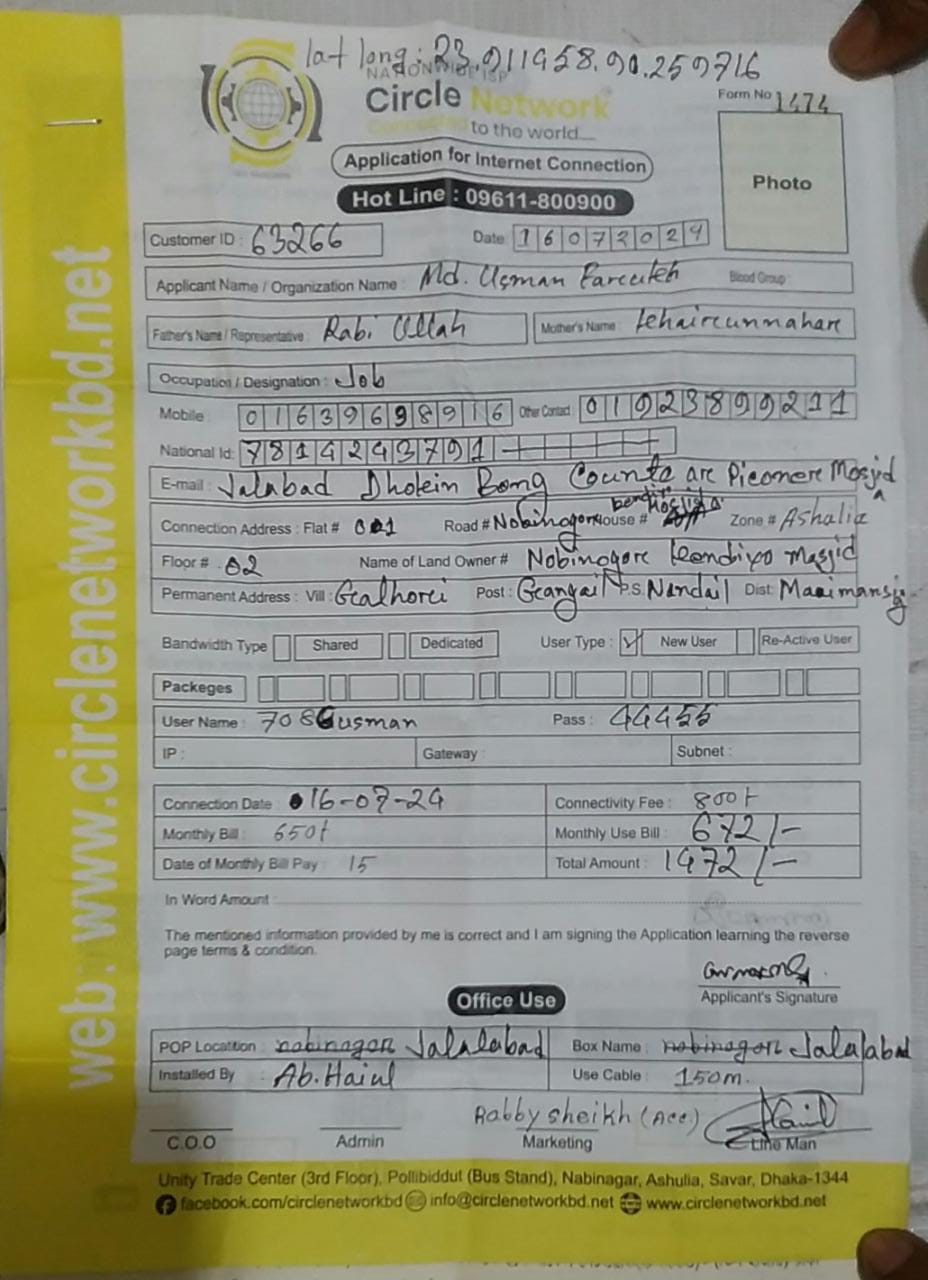 lat long: 23.911958.90.259716
NATIONWIDE ISP
Form No 1474
Circle Network
Connected to the world....
Application for Internet Connection
Photo
Hot Line : 09611-800900
Customer ID : 63266 Date: 16072024
Applicant Name / Organization Name : Md. Usman Blood Group :
Father's Name / Representative : Rabi Ullah Mother's Name :
Occupation / Designation : Job
Mobile : 01639698916 Other Contact : 01923899211
National Id: 7814243791
E-mail : Jalabad Mosjid
Connection Address : Flat # 001 Road # Nobinagor House # Zone # Ashalia
Floor # 02 Name of Land Owner # Nobinogore Masjid
Permanent Address : Vill : Post : P.S. Nandail Dist:
Bandwidth Type Shared Dedicated User Type : ✓ New User Re-Active User
Packeges
User Name : usman Pass : 44455
IP : Gateway : Subnet :
Connection Date : 16-07-24 Connectivity Fee : 800t
Monthly Bill : 650t Monthly Use Bill : 672/-
Date of Monthly Bill Pay : 15 Total Amount : 1472/-
In Word Amount
The mentioned information provided by me is correct and I am signing the Application learning the reverse
page terms & condition.
Applicant's Signature
Office Use
POP Locatition : nobinagor Jalalabad Box Name : nobinagor Jalalabad
Installed By : Ab. Use Cable : 150m.
Rabby sheikh (Acc)
C.O.O Admin Marketing Line Man
Unity Trade Center (3rd Floor), Pollibiddut (Bus Stand), Nabinagar, Ashulia, Savar, Dhaka-1344
facebook.com/circlenetworkbd info@circlenetworkbd.net www.circlenetworkbd.net
web: www.circlenetworkbd.net